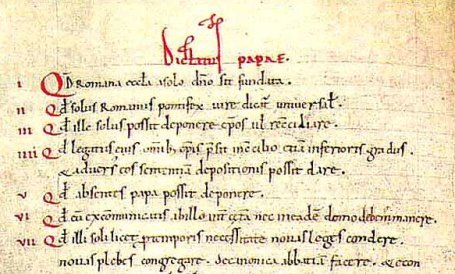 Dictatus papae.
i Qd Romana eccla a solo dno sit fundata.
ii Qd solus Romanus pontifex iure dicat universal.
iii Qd ille solus possit deponere epos ul reconciliare.
iiii Qd legatus eius omib; epis psit in concilio etia inferioris gradus.
& adversus eos sententia depositionis possit dare.
v Qd absentes papa possit deponere.
vi Qd cu excomunicatis ab illo int cetera nec in eade domo debem manere.
vii Qd illi soli licet p temporis necessitate novas leges condere.
novas plebes congregare. de canonica abbatia facere. & econ